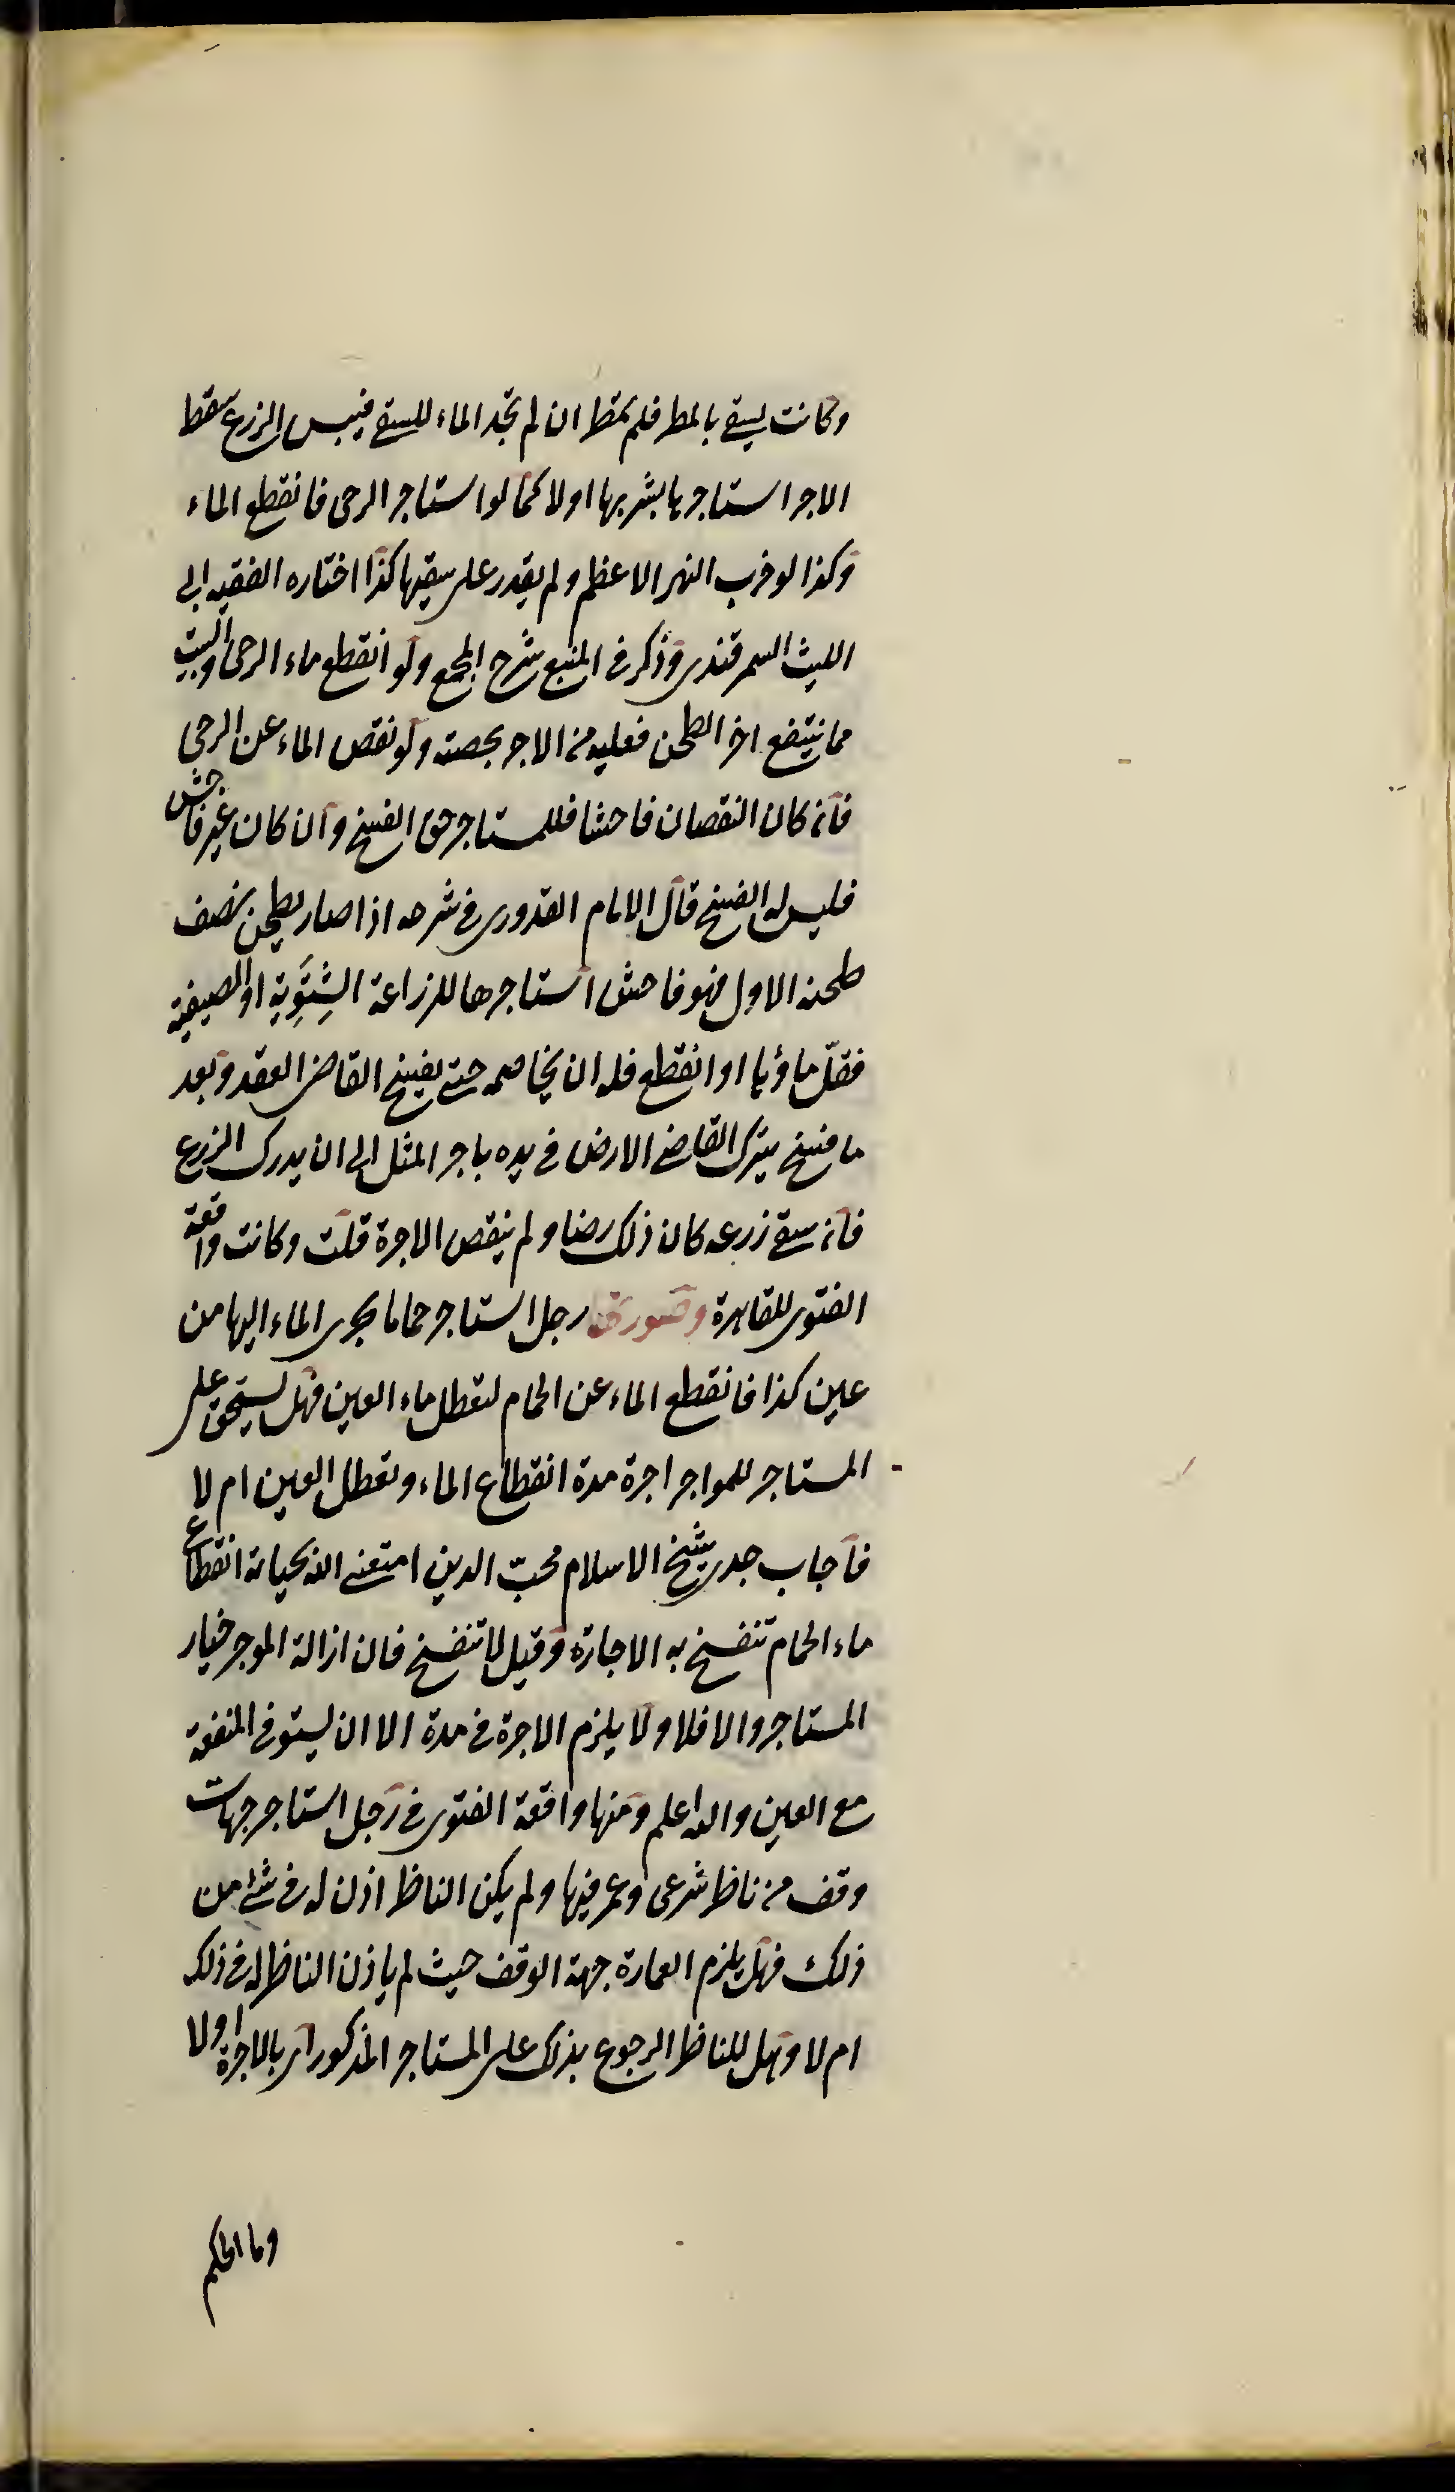 وكانت يسقي بالمطر فلم تمطر ان لم تجد الماء للسقي فيبس الزرع سقط
الاجر استاجرها بشربها اولا كما لو استاجر الرحى فانقطع الماء
وكذا لو خرب النهر الاعظم ولم يقدر على سقيها كذا اختاره الفقيه ابى
الليث السمرقندى وذكر فى المنبع شرح المجمع ولو انقطع ماء الرحى والبيت
مما ينتفع لغير الطحن فعليه من الاجر بحصته ولو نقص الماء عن الرحى
فان كان النقصان فاحشا فللمستاجر حق الفسخ وان كان غير فاحش
فليس له الفسخ قال الامام القدورى فى شرحه اذا صار يطحن نصف
طحنه الاول فهو فاحش استاجرها للزراعة الشِتَوِية او الصيفية
فقلّ ماؤها او انقطع فله ان يخاصمه حتى يفسخ القاضى العقد وبعد
ما فسخ يترك القاضى الارض فى يده باجر المثل الى ان يدرك الزرع
فان سقى زرعه كان ذلك رضا ولم ينقص الاجرة قلت وكانت واقعة
الفتوى للقاهرة وصورتها رجل استاجر حماما يجرى الماء اليها من
عين كذا فانقطع الماء عن الحمام لتعطل ماء العين فهل يستحق على
المستاجر للمواجر اجرة مدة انقطاع الماء وتعطل العين ام لا
فاجاب جدى شيخ الاسلام محبّ الدين امتعنى الله بحياته انقطاع
ماء الحمام تنفسخ به الاجارة وقيل لا تنفسخ فان ازالة الموجر خيار
المستاجر والا فلا ولا يلزم الاجرة فى مدة الا ان يستوفى المنفعة
مع العين والله اعلم ومنها واقعة الفتوى فى رجل استاجر جهات
وقف من ناظر شرعى وعمر فيها ولم يكن الناظر اذن له فى شئ من
ذلك فهل يلزم العمارة جهة الوقف حيث لم ياذن الناظر له فى ذلك
ام لا وهل للناظر الرجوع بذلك على المستاجر المذكور اى بالاجرة اولا
وما الحكم